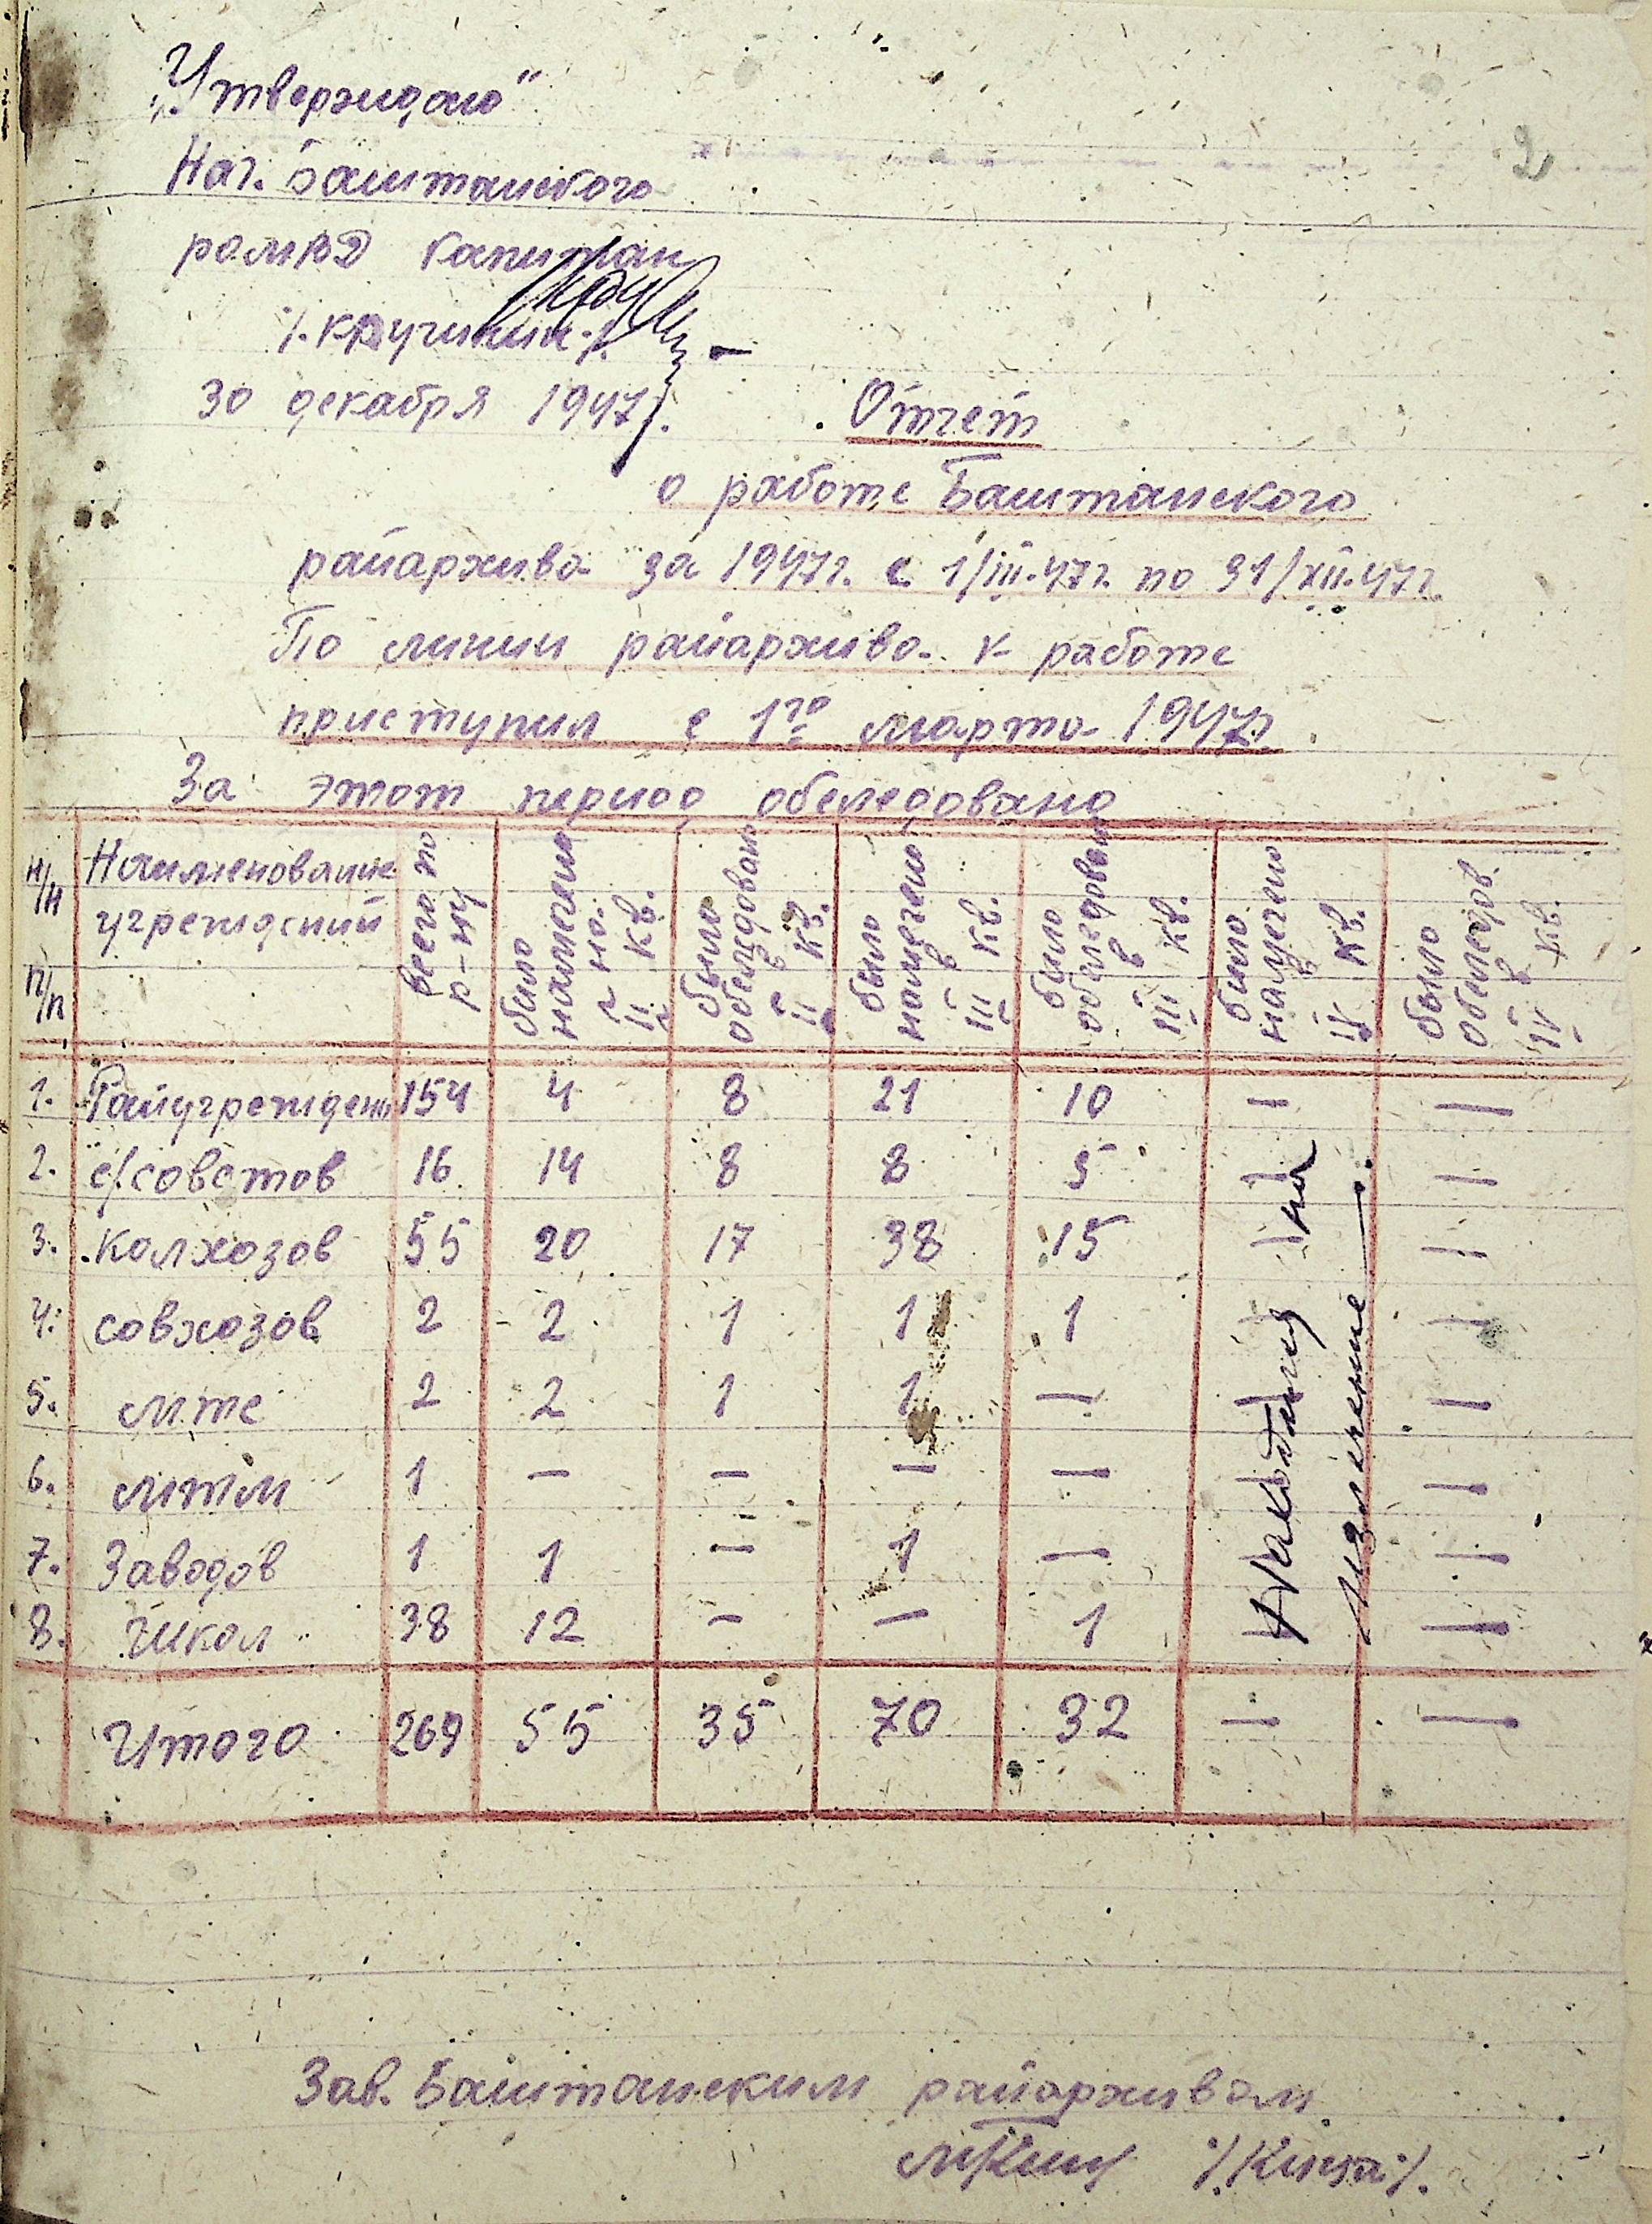 „Утверждаю"
Нач. Баштанского
роМВД капитан
/.Кручинин./.
30 декабря 1947г.
Отчет
о работе Баштанского
райархива за 1947г. с 1/III.47г. по 31/XII.47г.
По линии райархива к работе
приступил с 1го марта 1947г.
За этот период обследовано
н/н п/п | Наименование учреждений | всего по р-ну | было намечено на II кв. | было обследован в II кв. | было намечено в III кв. | было обследовано в III кв. | было намечено в IV кв. | было обследов. в IV кв.
1. Райучрежден 154 4 8 21 10 — —
2. с/советов 16 14 8 8 5 — —
3. Колхозов 55 20 17 38 15 — —
4. совхозов 2 2 1 1 1 — —
5. мтс 2 2 1 1 — — —
6. мтм 1 — — — — — —
7. Заводов 1 1 — 1 — — —
8. Школ 38 12 — — 1 — —
Находился на
излечение
Итого 269 55 35 70 32 — —
Зав. Баштанским райархивом
/.Кинза./.